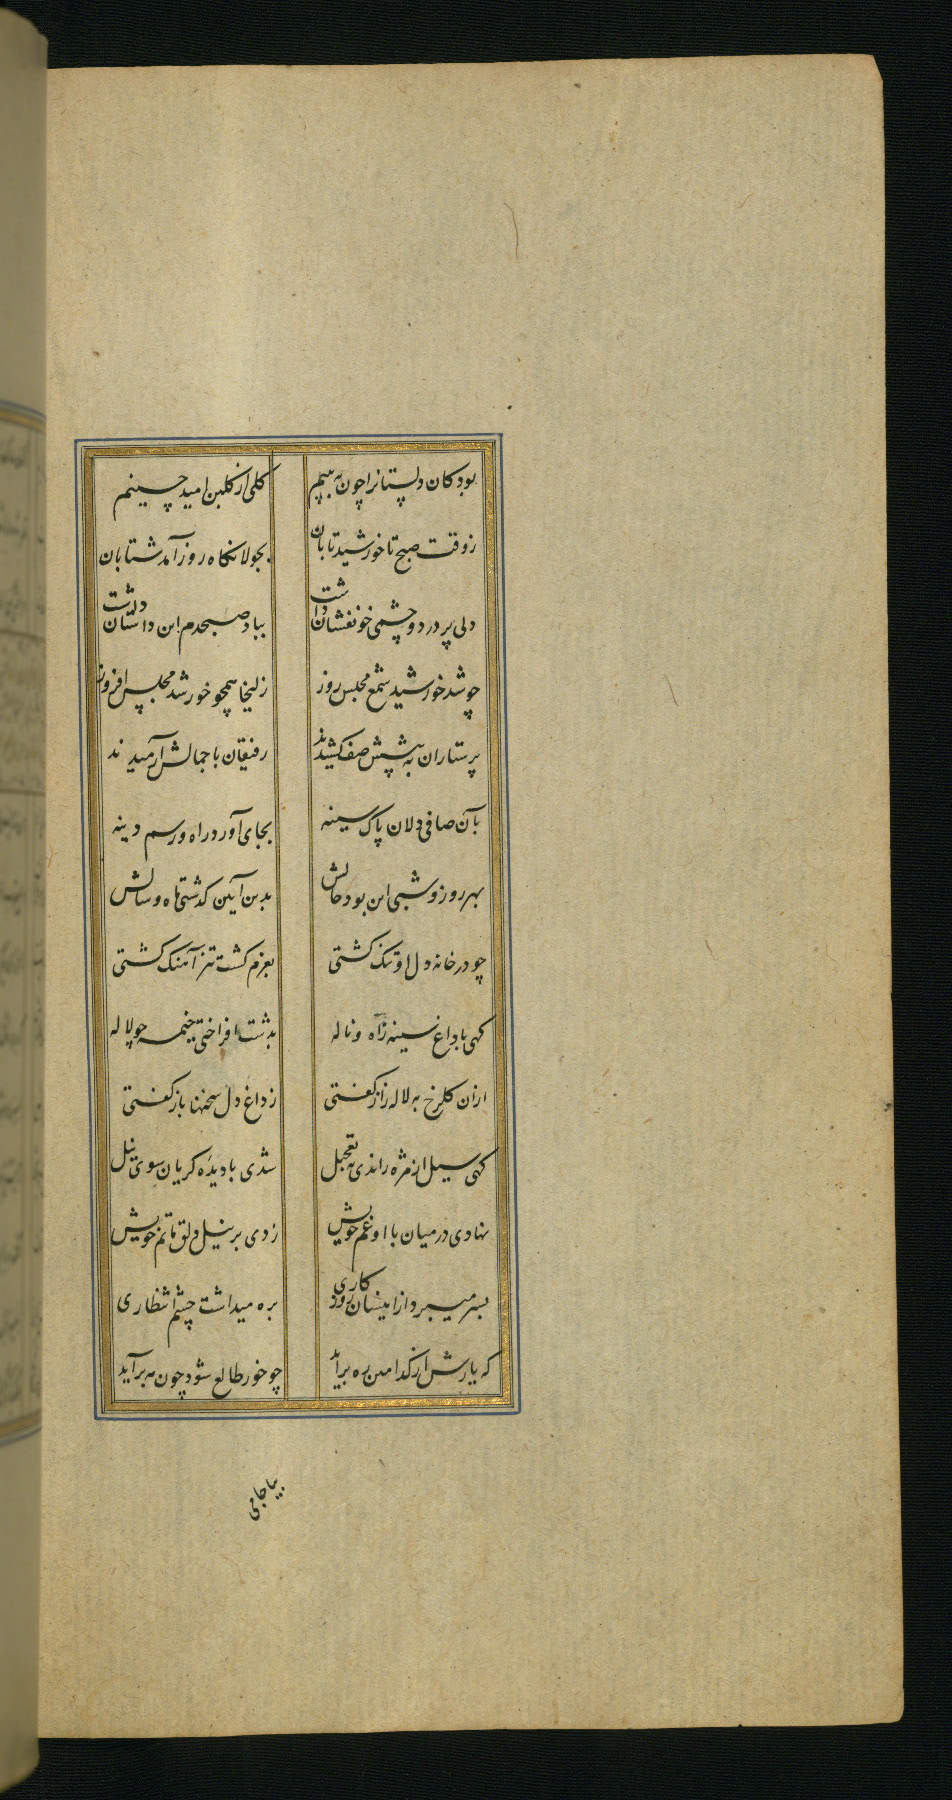 بود کان دلستانرا چون به بینم کلی از کلبن امید چینم
زوقت صبح تا خورشید تابان بجولانکاه روز آمد شتابان
دلی پر درد و چشمی خونفشان داشت بباد صبحدم این داستان داشت
چو شد خورشید شمع مجلس روز زلیخا همچو خورشد مجلس افروز
پرستاران به پیشش صف کشیدند رفیقان با جمالش آرمیدند
بآن صافی دلان پاک سینه بجای آورد راه و رسم دینه
بهر روز و شبی این بود حالش بدین آیین کذشتی ماه و سالش
چو در خانه دل او تنک کشتی بعزم کشت تیز آهنک کشتی
کهی با داغ سینه ز آه و ناله بدشت افراختی خیمه چو لاله
ازان کلرخ به لاله راز کفتی ز داغ دل سخنها باز کفتی
کهی سیل از مژه راندی به تعجیل شدی با دیده کریان سوی نیل
نهادی در میان با او غم خویش زدی بر نیل دلق ماتم خویش
بسر میبرد ازاینسان روزکاری بره میداشت چشم انتظاری
که یارش از کدامین ره برآید چو خور طالع شود چون مه برآید
بیا جامی